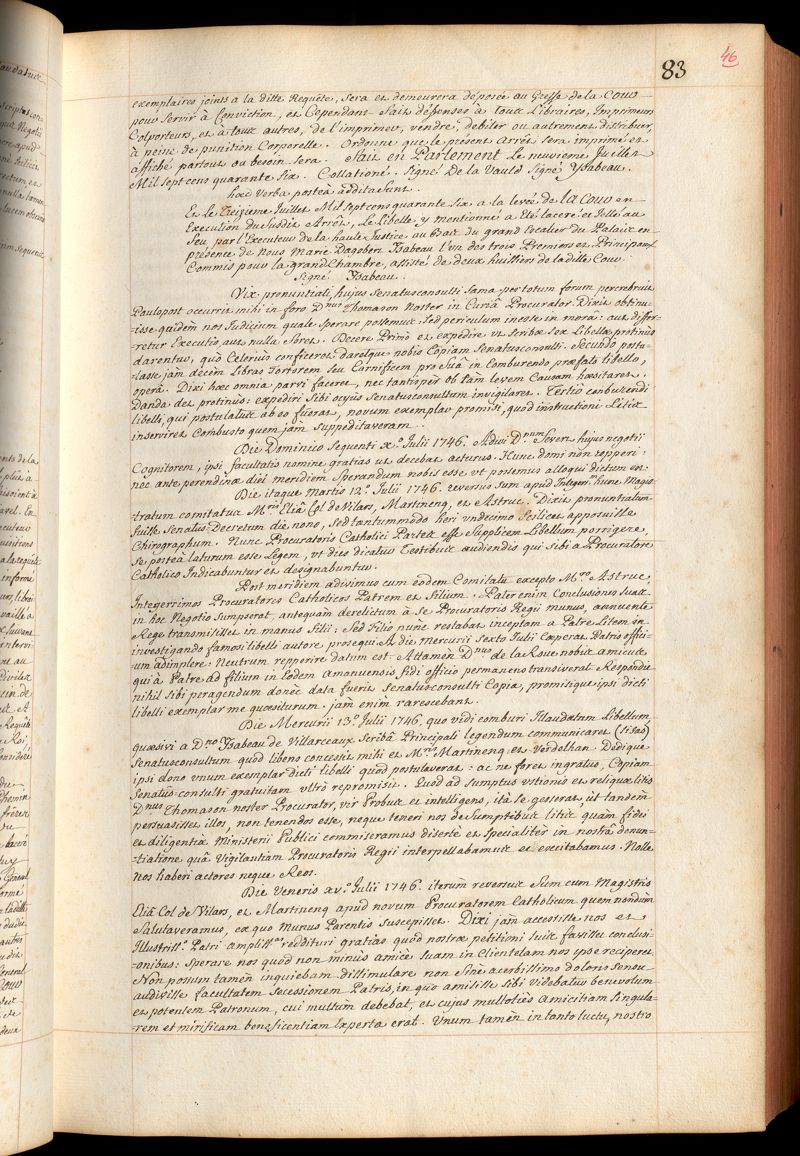 46
83
exemplaires joints a la ditte Requête, sera et demeurera déposée au Greffe de la Cour
pour servir à Conviction, et Cependant fait défenses à tous Libraires, Imprimeurs
Colporteurs, et à tous autres, de l'imprimer, vendre, debiter ou autrement distribuer,
à peine de punition Corporelle. Ordonne que le present Arrêt sera imprimé et
affiché partout ou besoin sera. Fait en Parlement Le neuvieme Juillet
Mil sept cens quarante six. Collationé. Signé De la Vauld Signé Ysabeau.
hæc Verba posteà addita sunt.
Et le treizieme Juillet Mil sept cens quarante six a la levée de la Cour en
Execution du susdit Arrêt, Le Libelle y mentionné a Eté laceré et Jetté au
feu, par l'Executeur de la haute Justice au Bas du grand Escalier du Palais en
présence de Nous Marie Dagobert Isabeau l'un des trois Premiers et Principaux
Commis pour la grand Chambre, assisté de deux huissiers de la ditte Cour.
Signé Isabeau.
Vix pronuntiati hujus senatusconsulti fama per totum forum percrebruit
Paulopost occurrit mihi in foro Dnus Thomason Noster in Curiâ Procurator. Dixit obtinu-
-isse quidem nos Judicium quale sperare possemus. sed periculum inesse in morâ: aut differ-
retur Executio, aut nulla foret. Decere Primò et expedire ut scribæ sex Libellæ protinus
darentur, quò Celerius conficeret daretque nobis Copiam senatusconsulti. Secundo postu-
lasse jam decem Libras Tortorem seu Carnificem pro suâ in Comburendo præfato libello,
operâ. Dixi hæc omnia parvi facerer, nec tantisper ob tam levem Causam hæsitaret.
Danda det protinus: expediri sibi ocyus senatusconsultum invigilaret. Tertiò comburendi
libelli, qui postulatus ab eo fuerat, novum exemplar promisi, quod instructioni Litis
inserviret Combusto quem jam suppeditaveram.
Die Dominico sequenti x.o Julii 1746. Adivi D.num Severt hujus negotii
Cognitorem, ipsi facultatis nomine gratias ut decebat acturus. Hunc domi non repperi;
nec ante perendinæ diei meridiem sperandum nobis esse ut possemus alloqui dictum est.
Die itaque Martis 12.o Julii 1746. reversus sum apud Integerr. hunc Magis-
tratum comitatus M.ris Eliâ Col de Vilars, Martinenq, et Astruc. Dixit pronuntiatum
fuisse senatus-Decretum die nono, sed tantummodo heri undecimo scilicet apposuisse
Chirographum. Nunc Procuratoris Catholici Partes esse supplicem Libellum porrigere,
se posteà laturum esse Legem, ut dies dicatur Testibus audiendis qui sibi a Procuratore
Catholico Indicabuntur et designabuntur.
Post meridiem adivimus cum eodem Comitatu excepto M.ro Astruc,
Integerrimos Procuratores Catholicos Patrem et Filium. Pater enim Conclusiones suas
in hoc Negotio sumpserat, antequam derelictum à se Procuratoris Regii munus, annuente
Rege transmisisset in manus filii; sed Filio nunc restabat inceptam a Patre Litem in
investigando famosi libelli autore prosequi. A die mercurii sexto Julii Cæperat Patris offici-
um adimplere. Neutrum repperire datum est. Attamen D.nus de la Roue nobis amicus
qui à Patre ad filium in Eodem Amanuensis fidi officio permanens transiverat Respondit
nihil sibi peragendum donec data fuerit senatusconsulti Copia, promisitque ipsi dicti
libelli exemplar me quæsiturum. jam enim rarescebant.
Die Mercurii 13.o Julii 1746, quo vidi comburi Illaudatum Libellum,
quæsivi a D.no Isabeau de Villarceaux scribâ Principali legendum communicaret (sisad)
senatusconsultum quod libens concessit mihi et M.ris Martinenq et Verdelhan. Dedique
ipsi dono unum exemplar dicti libelli quod postulaverat: ac ne foret ingratus, Copiam
senatûs-consulti gratuitam ultrò repromisit. Quod ad sumptus ustionis et reliquæ litis
D.nus Thomason noster Procurator, vir Probus et intelligens, ità se gesserat, ut tandem
persuasisset illos, non tenendos esse, neque teneri nos de sumptibus litis quam fidei
et diligentiæ Ministerii Publici commiseramus disertè et specialiter in nostrâ denun-
-tiatione quâ Vigilantiam Procuratoris Regii interpellabamus et excitabamus. Nolle
nos haberi actores neque Reos.
Die Veneris xv.o Julii 1746. iterum reversus sum cum Magistris
Eliâ Col de Vilars, et Martinenq apud novum Procuratorem Catholicum quem nondum
salutaveramus, ex quo Munus Parentis suscepisset. Dixi jam accessisse nos et
Illustriss.o Patri ampliss.as reddituri gratias quòd nostræ petitioni suis favisset conclusi-
-onibus: sperare nos quòd non minus amicè suam in Clientelam nos ipse reciperet
Non possum tamen inquiebam dissimulare non sine acerbissimo doloris sensu
audivisse facultatem secessionem Patris, in quo amisisse sibi videbatur benevolum
et potentem Patronum, cui multum debebat, et cujus multoties amicitiam singula-
rem et mirificam beneficentiam Experta erat. Unum tamen in tanto luctu, nostro